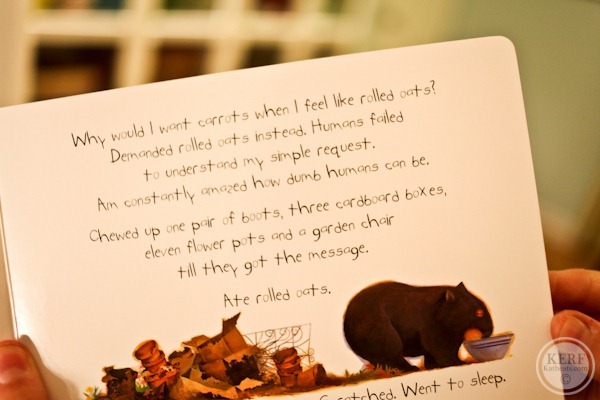 Why would I want carrots when I feel like rolled oats?
Demanded rolled oats instead. Humans failed
to understand my simple request.
Am constantly amazed how dumb humans can be.
Chewed up one pair of boots, three cardboard boxes,
eleven flower pots and a garden chair
till they got the message.
Ate rolled oats.
Scratched. Went to sleep.
KERF
Katheats.com